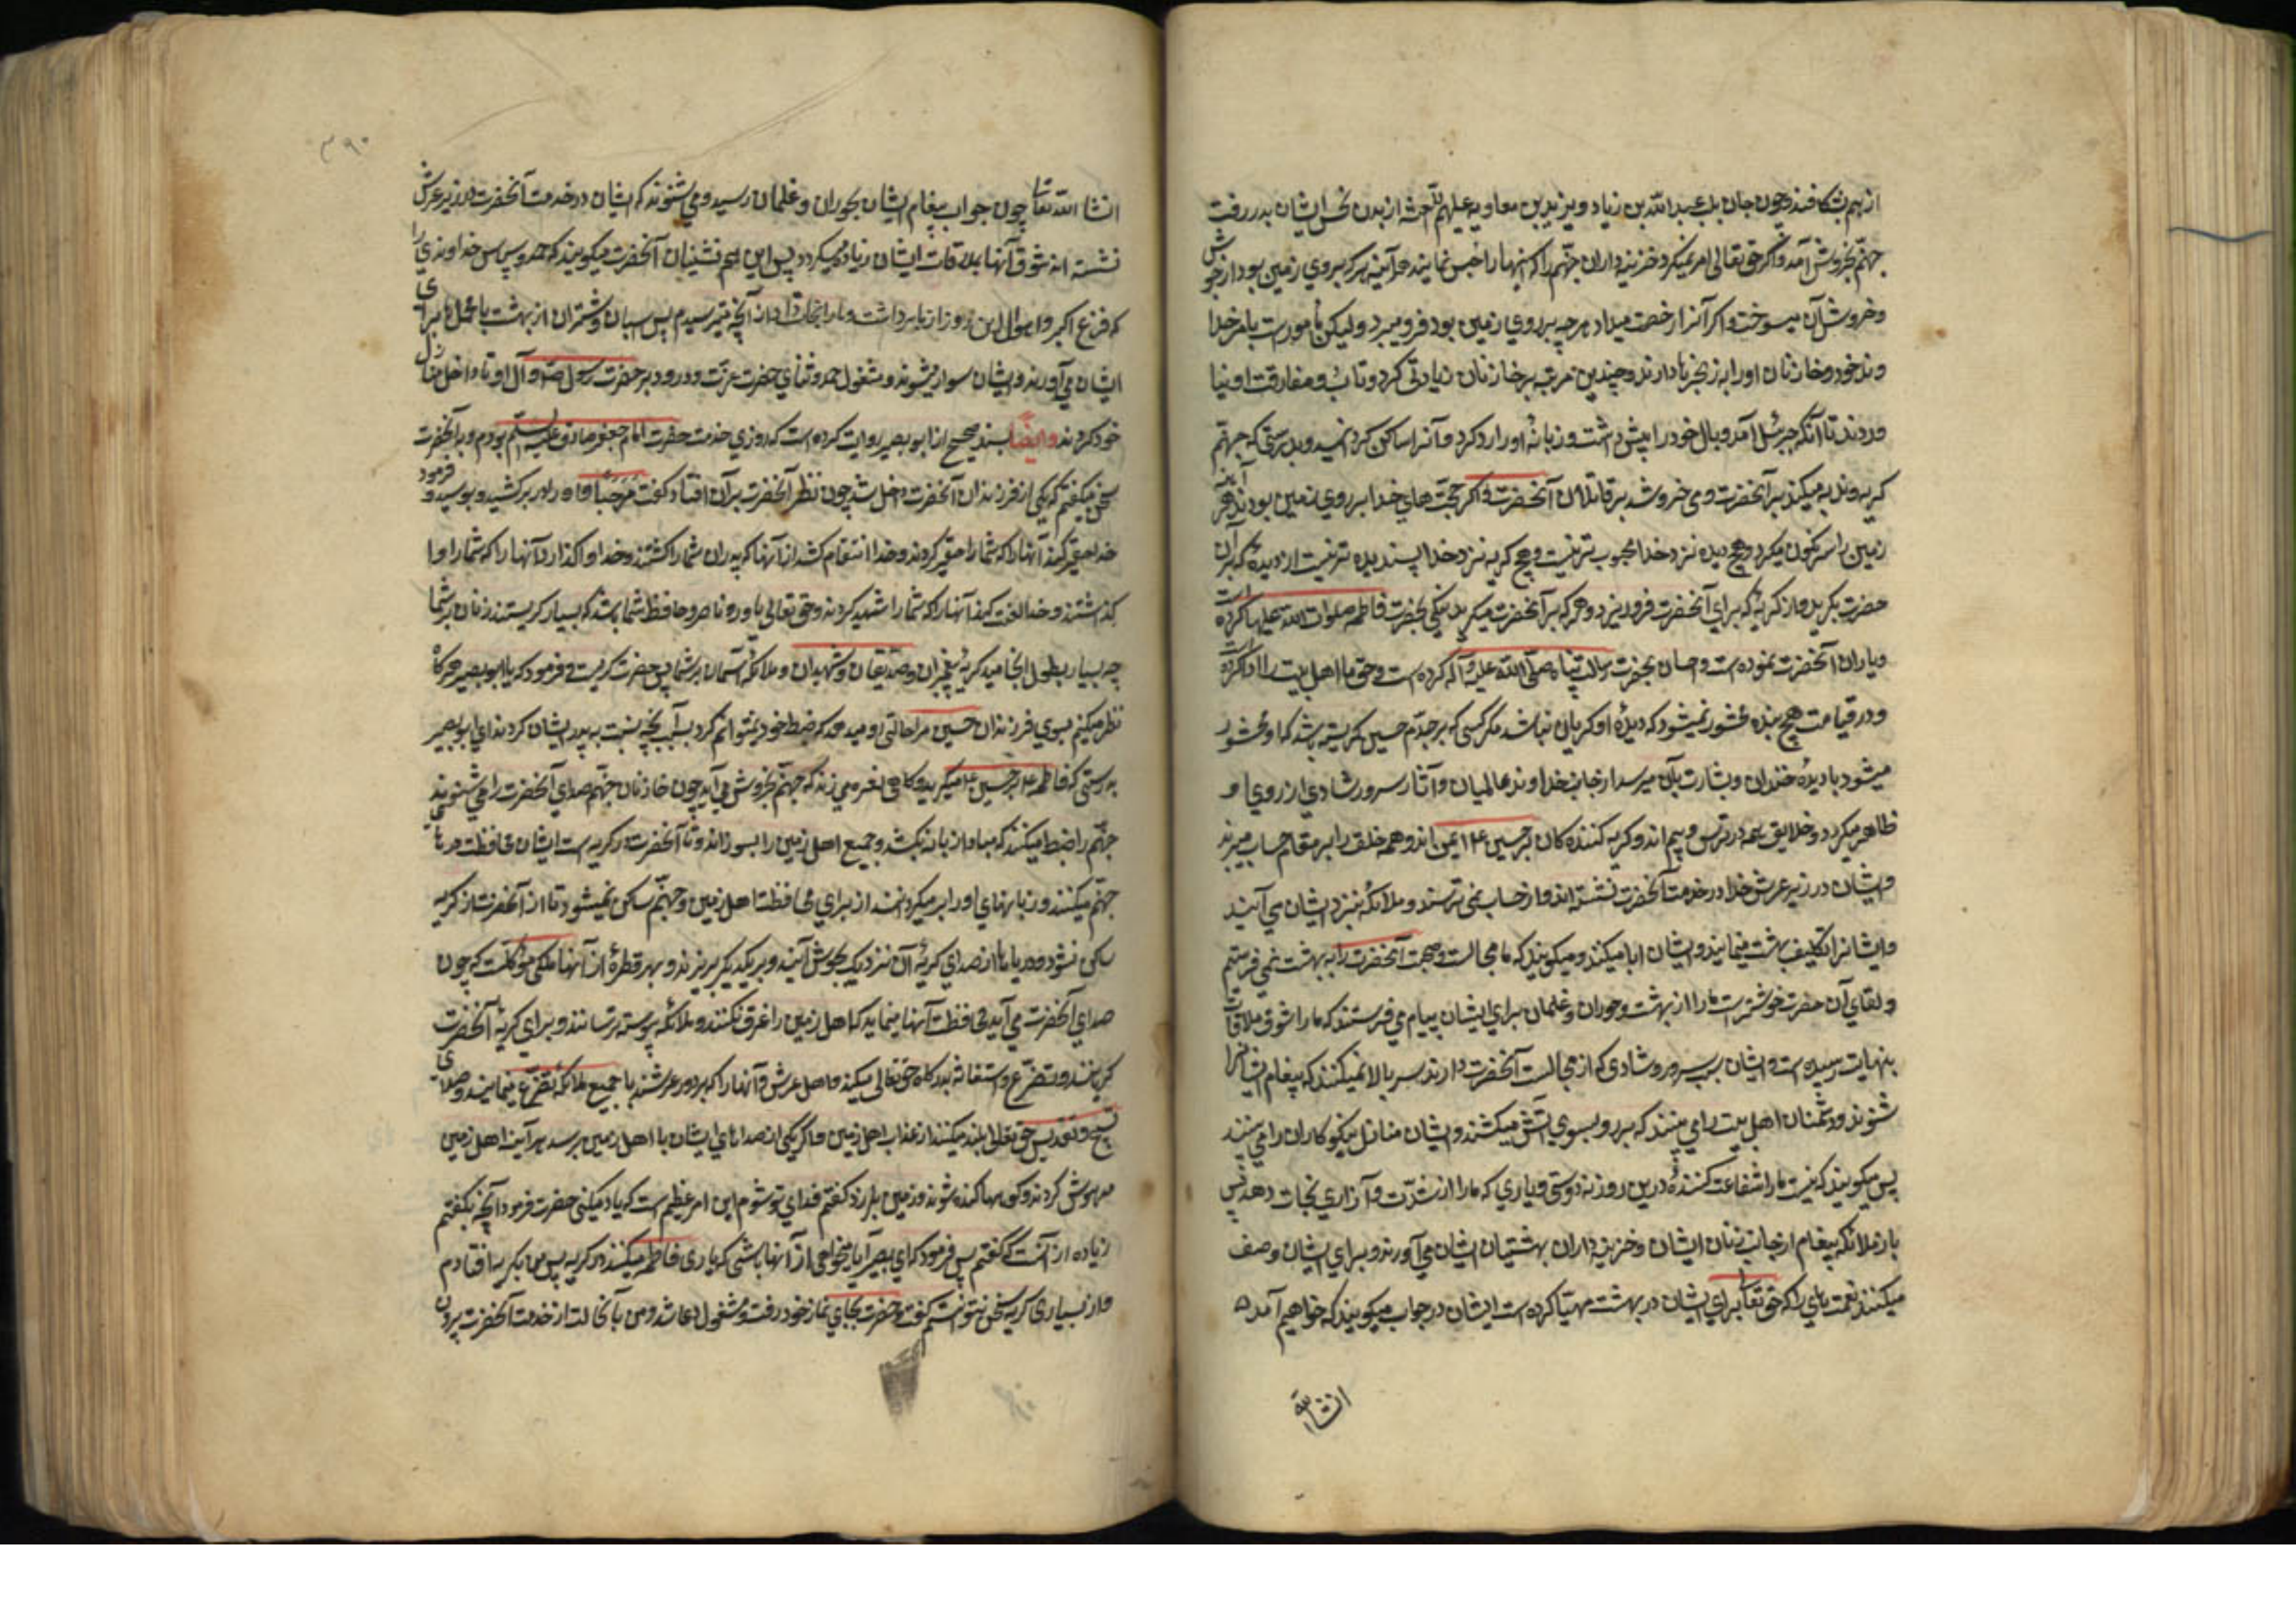 از هم بشکافند و چون جان بد عبد الله بن زیاد و یزید بن معاویه علیهم اللعنة از بدن نحس ایشان بدر رفت
جهنّم بخروش آمد و اگر حق تعالی امر نمیکرد خزینه داران جهنّم را که اینها را حبس نمایند هر آینه هر که بر روی زمین بود از جوش
و خروش آن میسوخت و اگر آنرا رخصت میداد هر چه بر روی زمین بود فرو میبرد و لیکن مأمورست بامر خدا
وند خود و خازنان او را به زنجیرها دارند و چندین مرتبه بر خازنان زیادتی کرد و تاب مفارقت او نیا
وردند تا آنکه جبرئیل آمد و بال خود را پیش داشت و زبانهٔ او را رد کرد و آنرا ساکن گردانید و بدرستی که جهنّم
گریه و ندبه میکند بر آنحضرت و می خروشد بر قاتلان آنحضرت و اگر حجّت های خدا بر روی زمین بودند هر آینه
زمین را سرنگون میکرد و هیچ دیده نزد خدا محبوب تر نیست و هیچ گریه نزد خدا پسندیده تر نیست از دیدهٔ که بر آن
حضرت بگرید و از گریهٔ که برای آنحضرت فرو ریزد و هر که بر آنحضرت میگرید نیکی بحضرت فاطمه صلوات الله علیها کرده است
و یاران آنحضرت نموده است و احسان بحضرت رسالت پناه صلّی الله علیه و آله کرده است و حق ما اهل بیت را ادا کرده است
و در قیامت هیچ بنده محشور نمیشود که دیدهٔ او گریان نباشد مگر کسی که بر جدّم حسین گریسته باشد که او محشور
میشود با دیدهٔ خندان و بشارت بآن میرسد از جانب خداوند عالمیان و آثار سرور شادی از روی او
ظاهر میگردد و خلایق همه در ترس و بیم اند و گریه کننده کان بر حسین ع ایمن اند و همه خلق را بر مقام حساب میبرند
و ایشان در زیر عرش خدا در خدمت آنحضرت نشسته اند و از حساب نمی ترسند و ملائکه بنزد ایشان می آیند
و ایشانرا تکلیف بهشت مینمایند و ایشان ابا میکنند و میگویند که ما مجالست و صحبت آنحضرت را به بهشت نمی فرستیم
و لقای آن حضرت خوشترست ما را از بهشت و حوران و غلمان برای ایشان پیام می فرستند که ما را شوق ملاقات
بنهایت رسیده است و ایشان بسبب سرور و شادی که از مجالست آنحضرت دارند سر بالا نمیکنند که پیغام ایشانرا
شنوند و دشمنان اهل بیت را می بینند که بر رو بسوی آتش میکشند و ایشان منازل نیکوکاران را می بینند
پس میگویند که نیست ما را شفاعت کنندهٔ درین روز نه دوستی و یاری که ما را ازین شدّت و آزاری نجات دهد پس
باز ملائکه پیغام از جانب زنان ایشان و خزینه داران بهشتیان ایشان می آورند و برای ایشان وصف
میکنند نعمت های را که حق تعالی برای ایشان در بهشت مهیّا کرده است ایشان در جواب میگویند که خواهیم آمد
انشاء الله
٣٩٠
انشاء الله تعالی چون جواب پیغام ایشان بحوران و غلمان رسید و می شنوند که ایشان در خدمت آنحضرت در زیر عرش
نشسته اند شوق آنها بملاقات ایشان زیاده میگردد پس این هم نشینان آنحضرت میگویند که حمد و سپاس خداوندی را
که فزع اکبر و اهوال این روز از ما برداشت و ما را نجات داد از آنچه میترسیدیم پس اسبان و شتران از بهشت با محمل ها برای
ایشان می آورند و ایشان سوار میشوند و مشغول حمد و ثنای حضرت عزّت و درود بر حضرت رسول ص و آل او تا داخل منازل
خود گردند و ایضاً بسند صحیح از ابو بصیر روایت کرده است که روزی خدمت حضرت امام جعفر صادق علیه السلم بودم و با آنحضرت
سخن میگفتم که یکی از فرزندان آنحضرت داخل شد چون نظر آنحضرت بر آن افتاد گفت مرحبا و او را در بر کشید و بوسید و فرمود
خدا حقیر کند آنها را که شما را حقیر کردند و خدا انتقام کشد از آنها که پدران شما را کشتند و خدا واگذارد آنها را که شما را وا
گذاشتند و خدا لعنت کند آنها را که شما را شهید کردند و حق تعالی یاور و ناصر و حافظ شما باشد که بسیار گریستند زنان بر شما
چه بسیار بطول انجامید گریهٔ پیغمبران و صدّیقان و شهیدان و ملائکهٔ آسمان بر شما پس حضرت گریست و فرمود که یا ابو بصیر هرگاه
نظر میکنم بسوی فرزندان حسین مرا حالتی رو میدهد که ضبط خود نمیتوانم کرد بسبب آنچه نسبت به پدر ایشان کردند ای ابو بصیر
بدرستی که فاطمه ع بر حسین ع میگرید و گاهی نعره می زند که جهنّم بخروش می آید چون خازنان جهنّم صدای آنحضرت را می شنوند
جهنّم را ضبط میکنند که مبادا زبانه بکشد و جمیع اهل زمین را بسوزاند و تا آنحضرت در گریه است ایشان محافظت درهای
جهنّم میکنند و زبانهای او را بر میگردانند از برای محافظت اهل زمین و جهنّم ساکن نمیشود تا از آنحضرت از گریه
ساکن نشود و دریاها از صدای گریهٔ آن نزدیک بجوش آیند و بر یکدیگر بریزند و بهر قطرهٔ از آنها ملکی موکّلست که چون
صدای آنحضرت می آید محافظت آنها مینماید که اهل زمین را غرق نکنند و ملائکه پیوسته ترسانند و برای گریهٔ آنحضرت
گریانند و تضرّع و استغاثه بدرگاه حق تعالی میکنند و اهل عرش و آنها را که بر دور عرشند با جمیع ملائکه تضرّع مینمایند و صدای
تسبیح و تقدیس حق تعالی بلند میکنند از عذاب اهل زمین و اگر یکی از صداهای ایشان با اهل زمین برسد هر آینه اهل زمین
مدهوش گردند و کوهها کنده شوند و زمین بلرزد گفتم فدای تو شوم این امر عظیم است که یاد میکنی حضرت فرمود آنچه نگفتم
زیاده از آنست که گفتم پس فرمود که ای ابو بصیر آیا نمیخواهی از آنها باشی که یاری فاطمه میکنند در گریه پس من بگریه افتادم
و از بسیاری گریه سخن نتوانستم گفت و حضرت بجای نماز خود رفت و مشغول دعا شد و من با آنحالت از خدمت آنحضرت بیرون